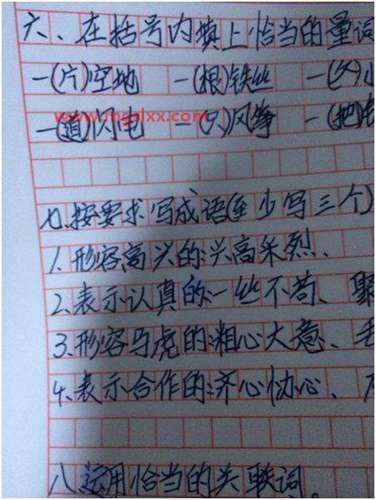 六、在括号内填上恰当的量词
一(片)空地 一(根)铁丝 一(
一(道)闪电 一(只)风筝 一(把
七、按要求写成语(至少写三个)
1、形容高兴的:兴高采烈、
2、表示认真的:一丝不苟、聚
3、形容马虎的:粗心大意、毛
4、表示合作的:齐心协心、
八、运用恰当的关联词